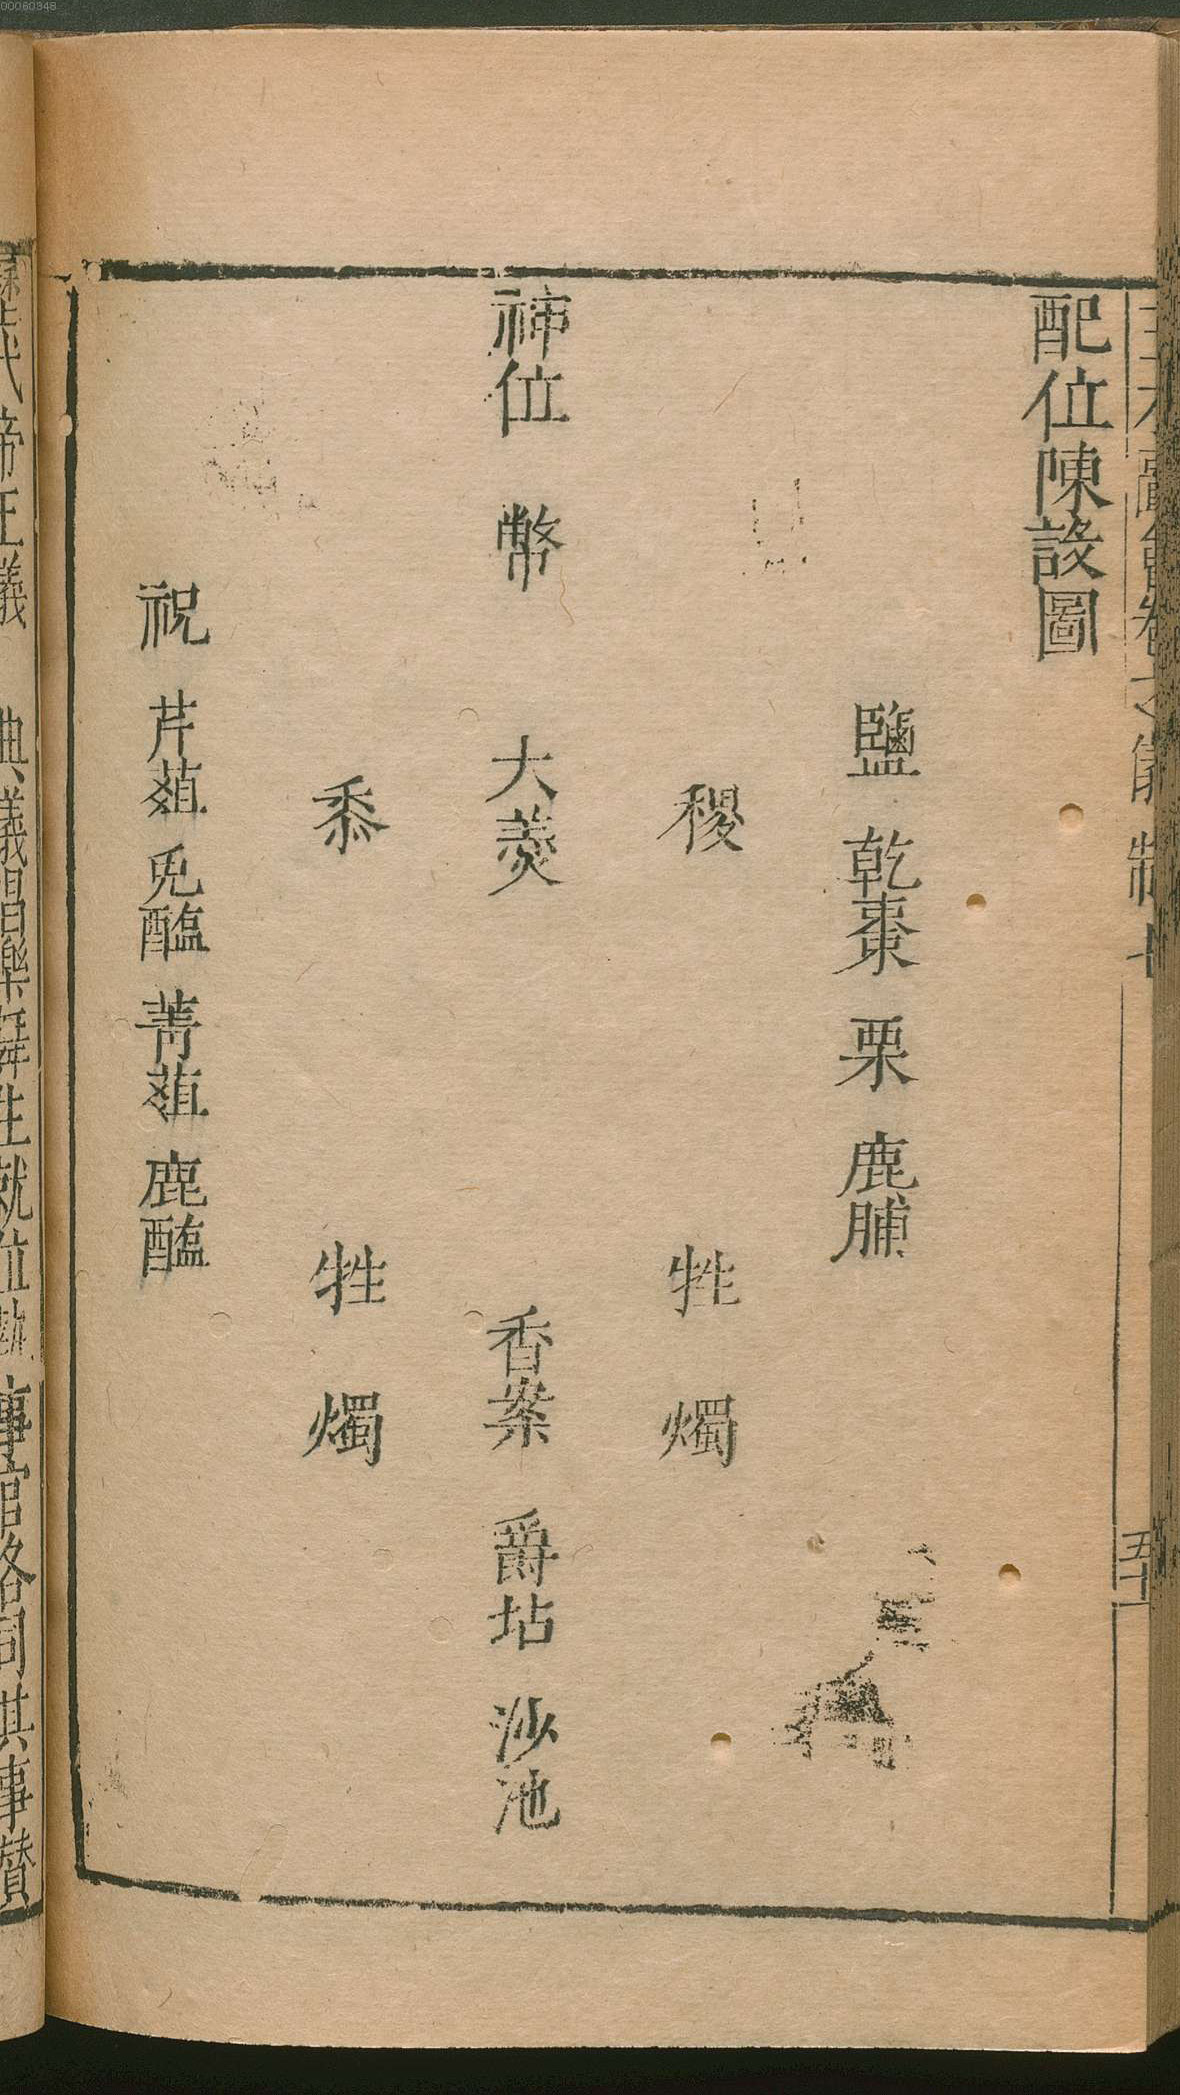 00060348
配位陳設圖
鹽 乾棗 栗 鹿脯
稷 牲 燭
神位 幣 大羹 香案 爵坫 沙池
黍 牲 燭
祝 芹菹 兎醢 菁菹 鹿醢
帝王儀 典儀唱樂舞生就位執事官各司其事贊